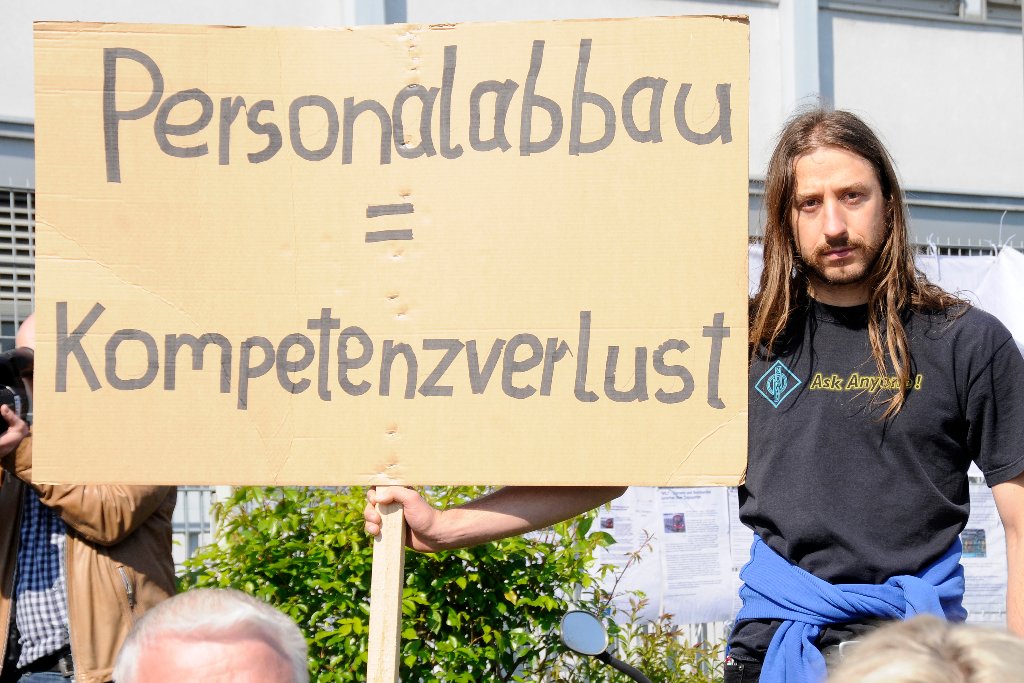 Personalabbau
=
Kompetenzverlust
Ask Anyone!